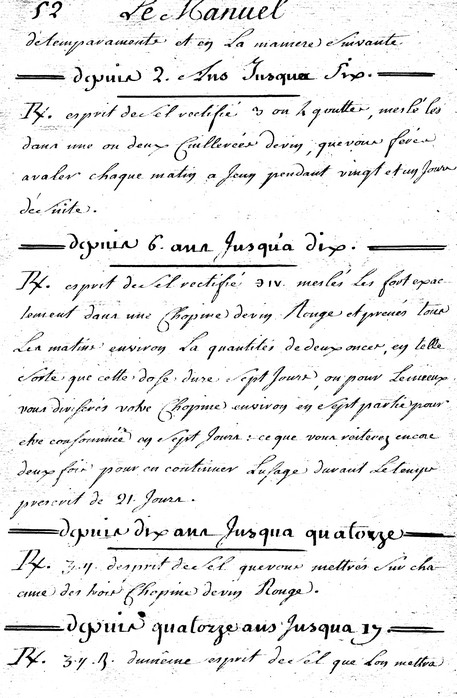 52 Le Manuel
detemparaments et en La maniere Suivante
depuis 2. Ans Jusqua Six.
℞. esprit de Sel rectifié 3 ou 4 gouttes, meslé les
dans une ou deux Cuillereés devin, que vous ferés
avaler chaque matin a Jeun pendant vingt et un Jours
de Suite.
depuis 6. ans Jusqu'a dix.
℞. esprit de Sel rectifié ℈IV. meslés Les fort exac-
tement dans une Chopine devin Rouge et prenés tous
Les matins environ La quantités de deux onces, en telle
Sorte que cette dose dure Sept Jours, ou pour Lemieux
vous diviserés votre Chopine environ en Sept parties pour
etre consommée en Sept Jours : ce que vous reiterez encore
deux fois pour en continuer Lusage durant Le temps
prescrit de 21. Jours.
depuis dix ans Jusqua quatorze
℞. ʒ.y. desprit de Sel que vous mettrés Sur cha-
cune des trois Chopine devin Rouge.
depuis quatorze ans Jusqua 17.
℞. ʒ.y.ß. dumême esprit de Sel que Lon mettra